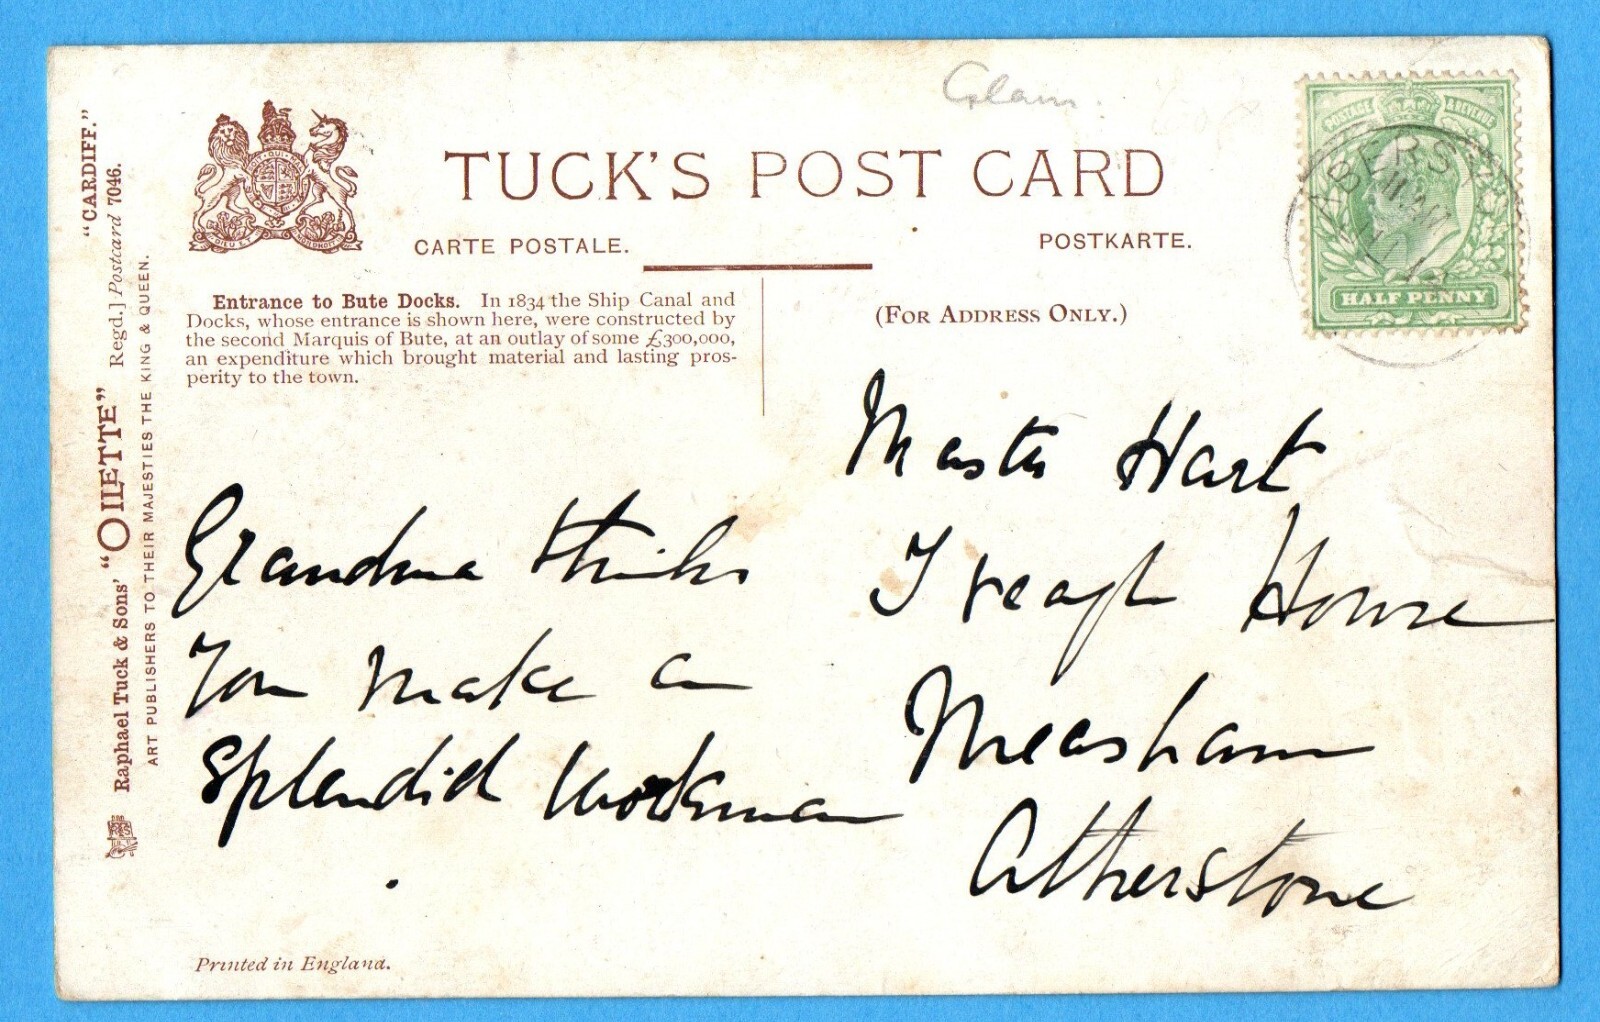 Glam.
TUCK'S POST CARD
CARTE POSTALE.
POSTKARTE.
Entrance to Bute Docks. In 1834 the Ship Canal and
Docks, whose entrance is shown here, were constructed by
the second Marquis of Bute, at an outlay of some £300,000,
an expenditure which brought material and lasting pros-
perity to the town.
(FOR ADDRESS ONLY.)
POSTAGE & REVENUE
HALF PENNY
Grandma thinks
You make a
Splendid workman
.
Master Hart
Iveagh House
Measham
Atherstone
Printed in England.
"CARDIFF."
Raphael Tuck & Sons' "OILETTE" Regd.] Postcard 7046.
ART PUBLISHERS TO THEIR MAJESTIES THE KING & QUEEN.